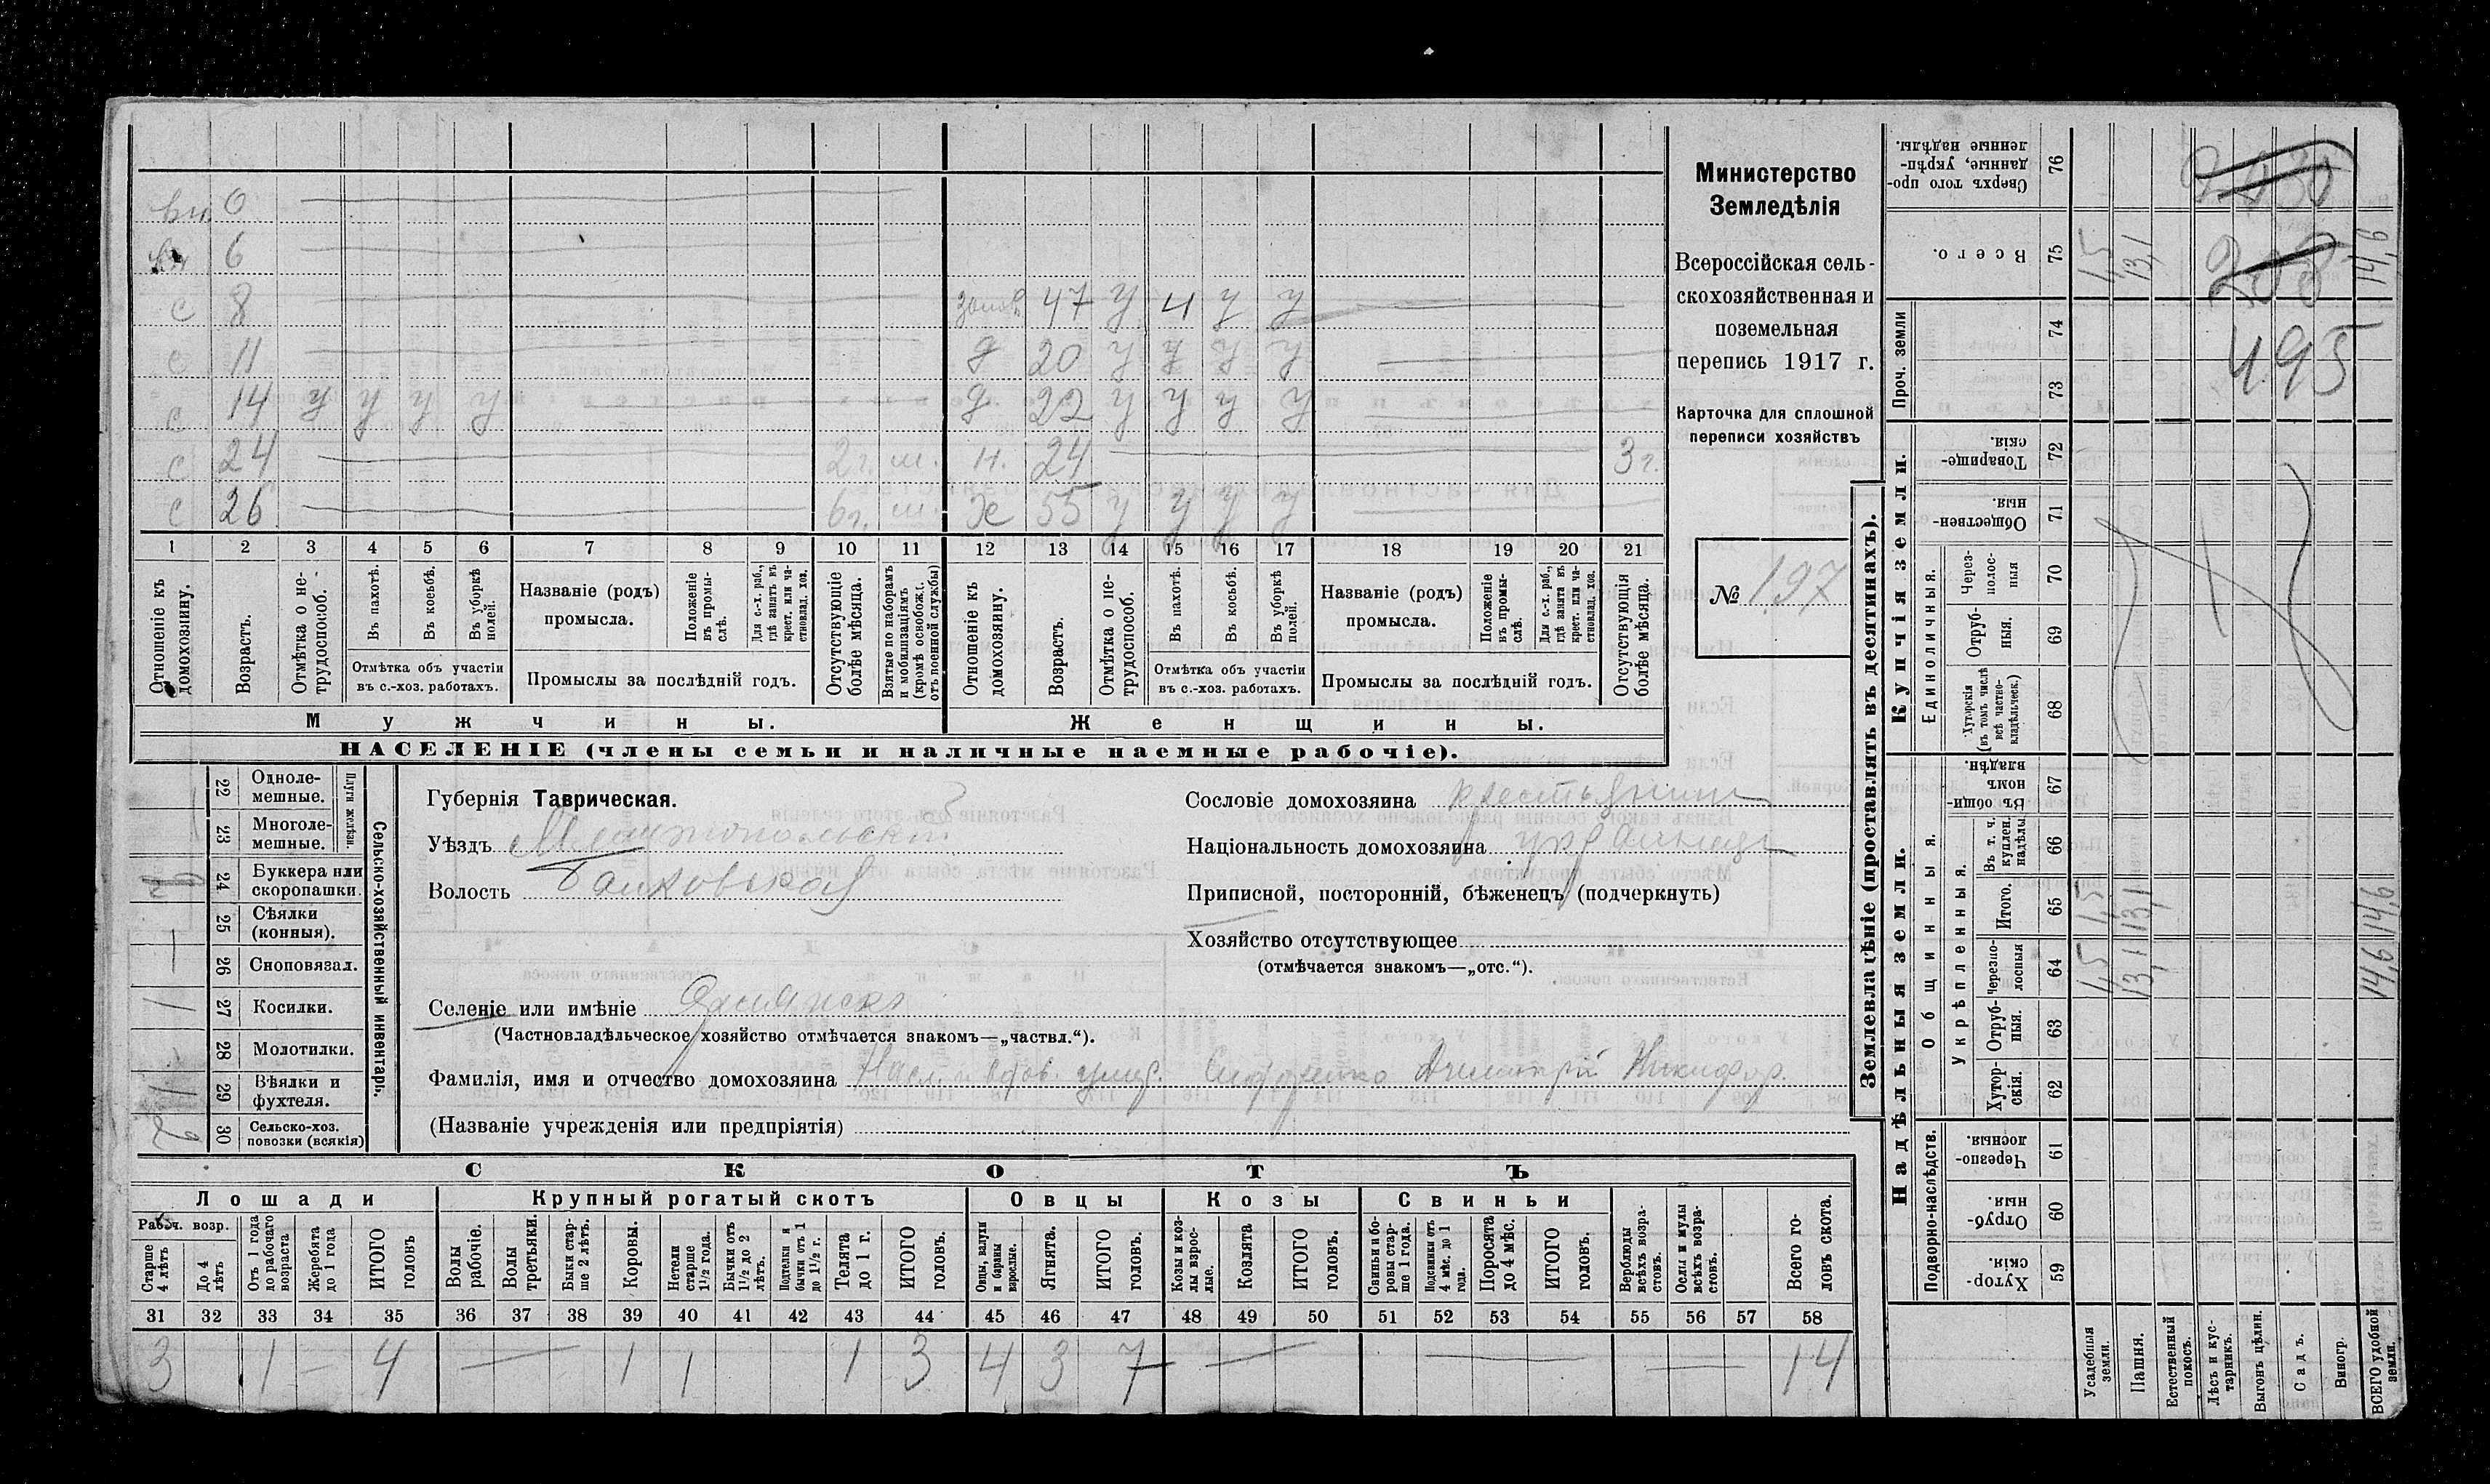 вн. 0
вн 6
с 8 золов. 47 у ч у у
с 11 д 20 у у у у
с 14 у у у у д 22 у у у у
с 24 2 г. ш. н. 24 3 г.
с 26 6 г. ш. ж 55 у у у у
1 2 3 4 5 6 7 8 9 10 11 12 13 14 15 16 17 18 19 20 21
Отношеніе къ домохозяину.
Возрастъ.
Отмѣтка о не-трудоспособ.
Въ пахотѣ.
Въ косьбѣ.
Въ уборкѣ полей.
Отмѣтка объ участіи въ с.-хоз. работахъ.
Названіе (родъ) промысла.
Положеніе въ промы-слѣ.
Для с.-х. раб., гдѣ занятъ въ крест. или ча-стновлад. хоз.
Промыслы за послѣдній годъ.
Отсутствующіе болѣе мѣсяца.
Взятые по наборамъ и мобилизаціямъ (кромѣ освобожд. отъ военной службы)
Отношеніе къ домохозяину.
Возрастъ.
Отмѣтка о не-трудоспособ.
Въ пахотѣ.
Въ косьбѣ.
Въ уборкѣ полей.
Отмѣтка объ участіи въ с.-хоз. работахъ.
Названіе (родъ) промысла.
Положеніе въ промы-слѣ.
Для с.-х. раб., гдѣ занята въ крест. или ча-стновлад. хоз.
Промыслы за послѣдній годъ.
Отсутствующія болѣе мѣсяца.
Мужчины. Женщины.
НАСЕЛЕНІЕ (члены семьи и наличные наемные рабочіе).
Министерство
Земледѣлія
Всероссійская сель-
скохозяйственная и
поземельная
перепись 1917 г.
Карточка для сплошной
переписи хозяйствъ
№ 197
Сельско-хозяйственный инвентарь.
Плуги желѣзн.
22 Одноле-мешные.
23 Многоле-мешные.
24 Буккера или скоропашки.
25 Сѣялки (конныя).
26 Сноповязал.
27 Косилки. 1
28 Молотилки.
29 Вѣялки и фухтеля. 1
30 Сельско-хоз. повозки (всякія) 2
Губернія Таврическая.
Уѣздъ Мелитопольскій
Волость Балковская
Сословіе домохозяина крестьянин
Національность домохозяина украинец
Приписной, посторонній, бѣженецъ (подчеркнуть)
Хозяйство отсутствующее
(отмѣчается знакомъ—„отс.“).
Селеніе или имѣніе
(Частновладѣльческое хозяйство отмѣчается знакомъ—„частвл.“).
Фамилія, имя и отчество домохозяина Дмитрій Никифор.
(Названіе учрежденія или предпріятія)
СКОТЪ
Лошади Крупный рогатый скотъ Овцы Козы Свиньи
Рабоч. возр.
Старше 4 лѣтъ
До 4 лѣтъ
Отъ 1 года до рабочаго возраста
Жеребята до 1 года
ИТОГО головъ
Волы рабочіе.
Волы третьяки.
Быки стар-ше 2 лѣтъ.
Коровы.
Нетели старше 1½ года.
Бычки отъ 1½ до 2 лѣтъ.
Подтелки и бычки отъ 1 до 1½ г.
Телята до 1 г.
ИТОГО головъ.
Овцы, валухи и бараны взрослые.
Ягнята.
ИТОГО головъ.
Козы и коз-лы взрос-лые.
Козлята
ИТОГО головъ.
Свиньи и бо-ровы стар-ше 1 года.
Подсвинки отъ 4 мѣс. до 1 года.
Поросята до 4 мѣс.
ИТОГО головъ.
Верблюды всѣхъ возра-стовъ.
Ослы и мулы всѣхъ возра-стовъ.
Всего го-ловъ скота.
31 32 33 34 35 36 37 38 39 40 41 42 43 44 45 46 47 48 49 50 51 52 53 54 55 56 57 58
3 1 — 4 — 1 1 1 3 4 3 7 — — — 14
Землевладѣніе (проставлять въ десятинахъ).
Купчія земли.
Надѣльныя земли.
76 Сверхъ того про-данные, укрѣп-ленные надѣлы.
75 Всего. 1,5 13,1 14,6
Проч. земли
74
73
72 Товарище-скія.
71 Обществен-ныя.
Единоличныя.
70 Через-полос-ныя
69 Отруб-ныя.
68 Хуторскія (въ томъ числѣ всѣ частно-владѣльческ.)
Общинныя.
67 Въ общи-номъ владѣн.
Укрѣпленныя.
66 Въ т. ч. куплен. надѣлы
65 Итого. 1,5 13,1 14,6
64 Черезпо-лосныя 1,5 13,1 14,6
63 Отруб-ныя.
62 Хутор-скія.
Подворно-наслѣдств.
61 Черезпо-лосныя.
60 Отруб-ныя.
59 Хутор-скія.
Усадебныя земли.
Пашня.
Естественный покосъ.
Лѣсъ и кус-тарникъ.
Выгонъ цѣлин.
Садъ.
Виногр.
ВСЕГО удобной земли.
495